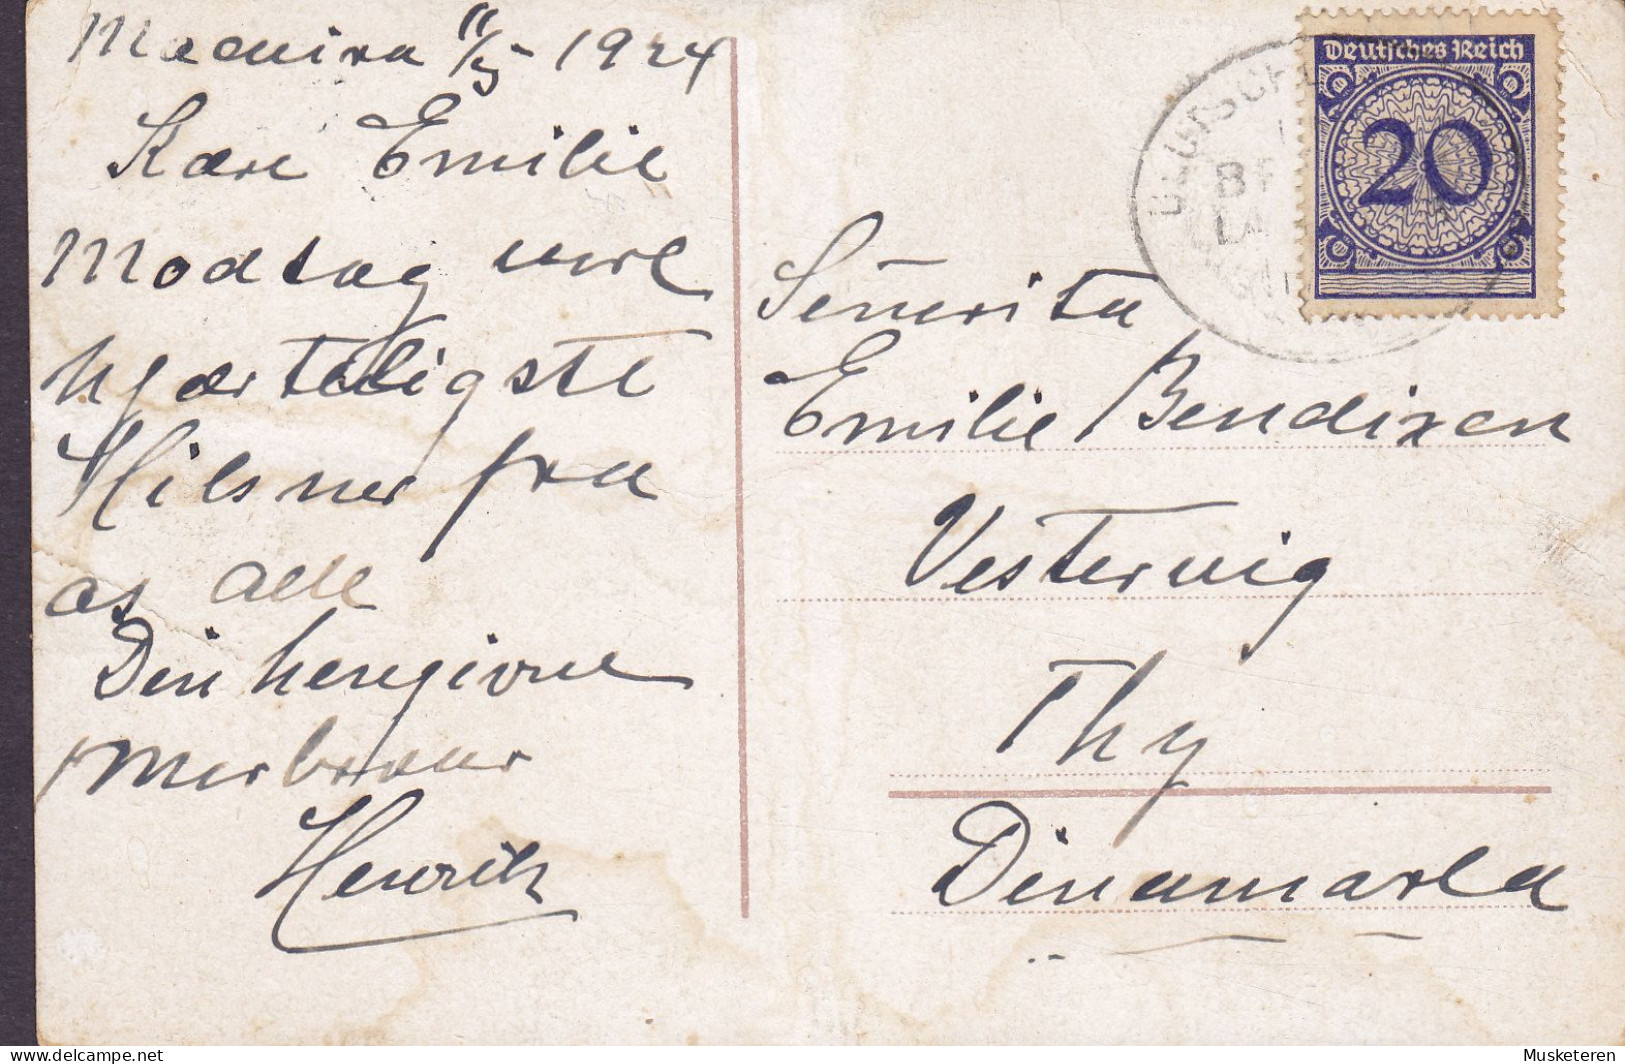 Madeira 11/5 - 1924
Kære Emilie
Modtag mine
hjærteligste
Hilsner fra
os alle
Din hengivne
morbroder
Henrik
Deutsches Reich
20
DEUTSCHE
Señorita
Emilie Bendixen
Vestervig
Thy
Dinamarka
Musketeren
delcampe.net